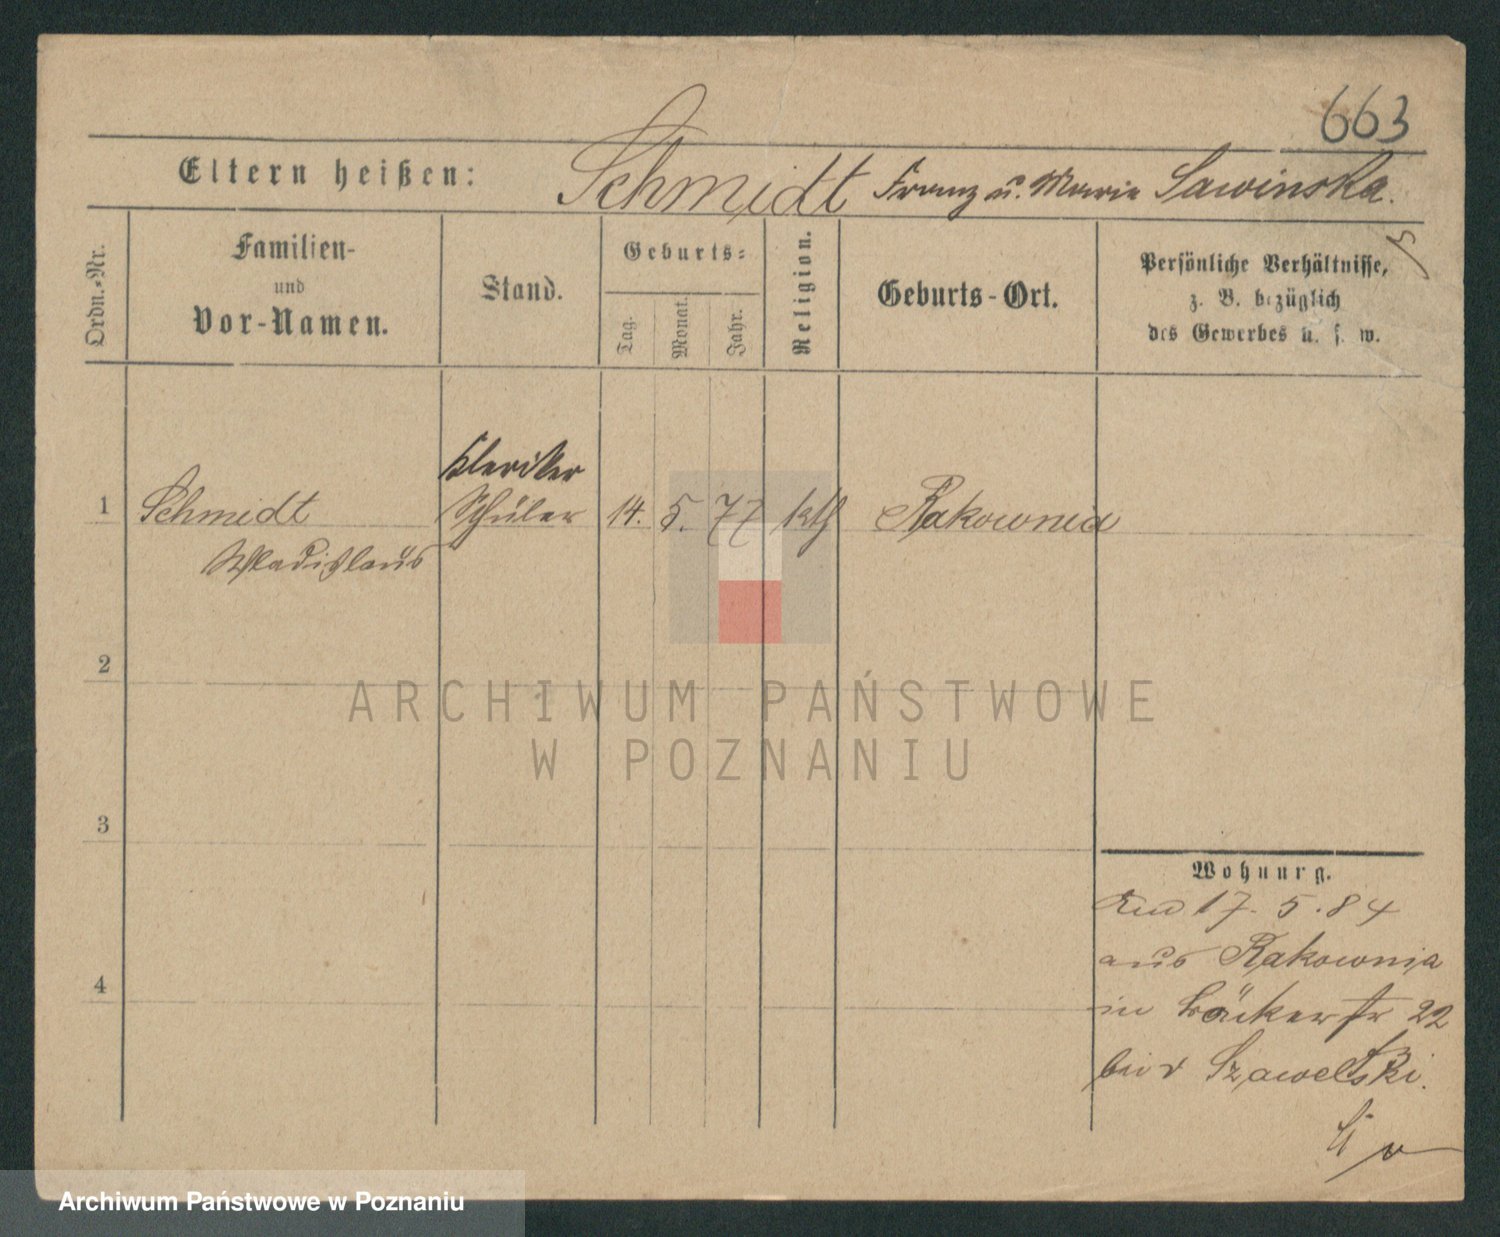 663
Eltern heißen: Schmidt Franz u. Marie Sawinska.
Ordn.-Nr.
Familien-
und
Vor-Namen.
Stand.
Geburts-
Tag.
Monat.
Jahr.
Religion.
Geburts-Ort.
Persönliche Verhältnisse,
z. B. bezüglich
des Gewerbes u. s. w.
Kleriker
1 Schmidt Schüler 14. 5. 77 kth Rakownia
Wladislaus
2
3
4
Wohnung.
17. 5. 84
aus Rakownia
in Bäckerstr 22
bei Szawelski.
ARCHIWUM PAŃSTWOWE
W POZNANIU
Archiwum Państwowe w Poznaniu